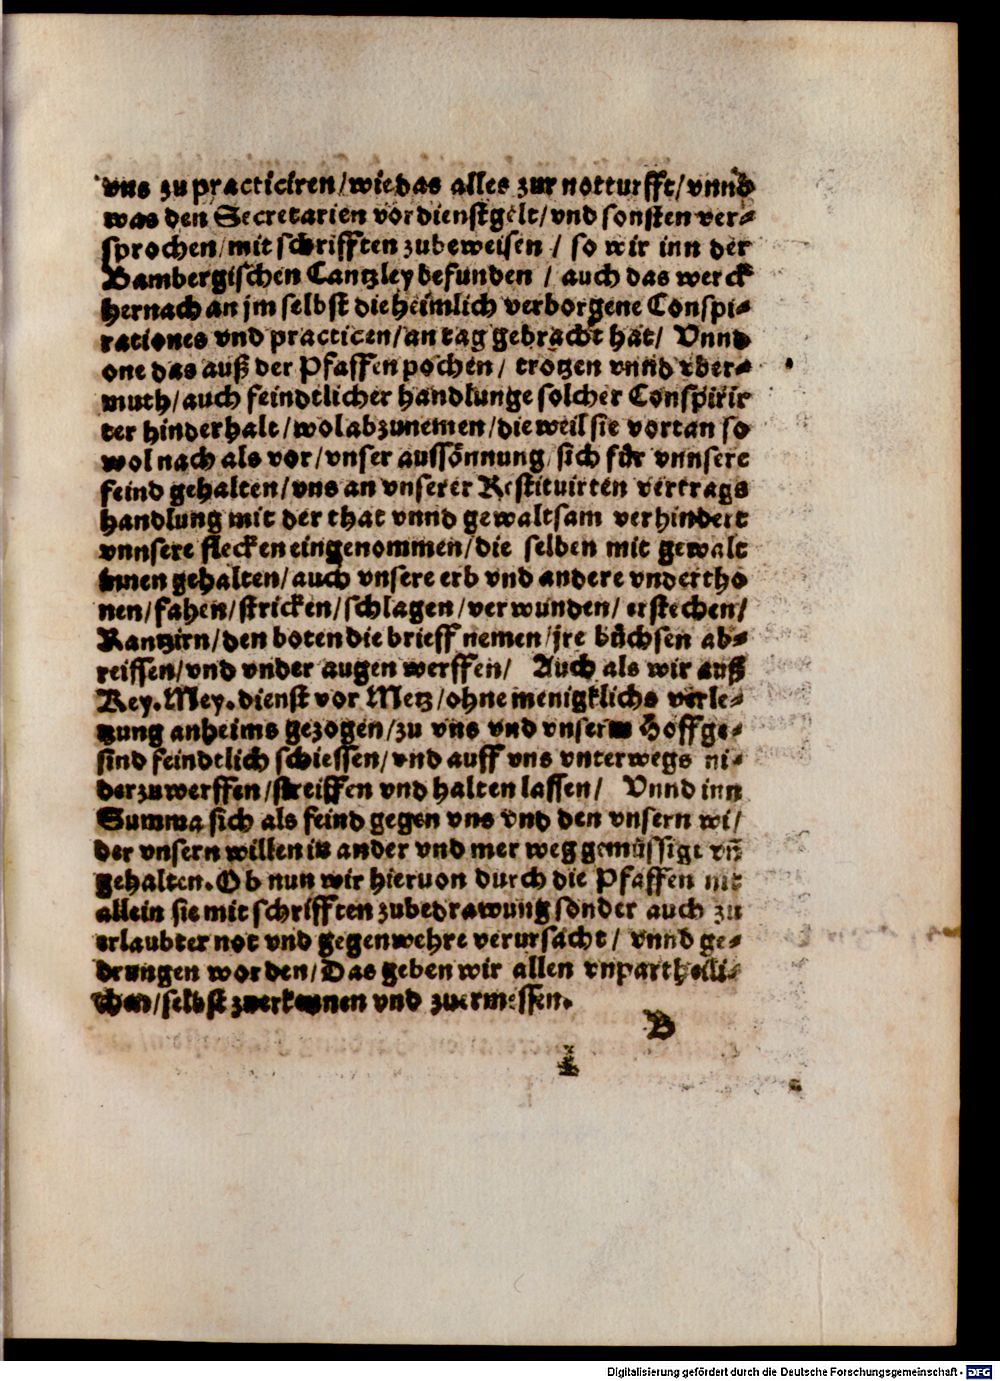 vns zu practiciren/wie das alles zur notturfft/vnnd
was den Secretarien vor dienstgelt/vnd sonsten ver⸗
sprochen/mit schrifften zubeweisen / so wir inn der
Bambergischen Cantzley befunden / auch das werck
hernach an jm selbst die heimlich verborgene Conspi⸗
rationes vnd practicen/an tag gebracht hat/ Vnnd
one das auß der Pfaffen pochen/ trotzen vnnd vber⸗
muth/auch feindtlicher handlunge solcher Conspirir
ter hinderhalt/wol abzunemen/die weil sie vortan so
wol nach als vor/vnser aussönnung/sich für vnnsere
feind gehalten/vns an vnserer Restituirten vertrags
handlung mit der that vnnd gewaltsam verhindert
vnnsere flecken eingenommen/die selben mit gewalt
innen gehalten/auch vnsere erb vnd andere vndertho
nen/fahen/stricken/schlagen/verwunden/erstechen/
Rantzirn/den boten die brieff nemen/jre büchsen ab⸗
reissen/vnd vnder augen werffen/ Auch als wir auß
Key. Mey. dienst vor Metz/ohne menigklichs verle⸗
tzung anheims gezogen/zu vns vnd vnserm Hoffge⸗
sind feindtlich schiessen/vnd auff vns vnterwegs ni⸗
derzuwerffen/streiffen vnd halten lassen/ Vnnd inn
Summa sich als feind gegen vns vnd den vnsern wi/
der vnsern willen in ander vnd mer weg gemüssigt vñ
gehalten. Ob nun wir hieruon durch die Pfaffen nit
allein sie mit schrifften zubedrawung sonder auch zu
erlaubter not vnd gegenwehre verursacht/ vnnd ge⸗
drungen worden/Das geben wir allen vnpartheili⸗
chen/selbst zuerkennen vnd zuermessen.
B
Digitalisierung gefördert durch die Deutsche Forschungsgemeinschaft - DFG